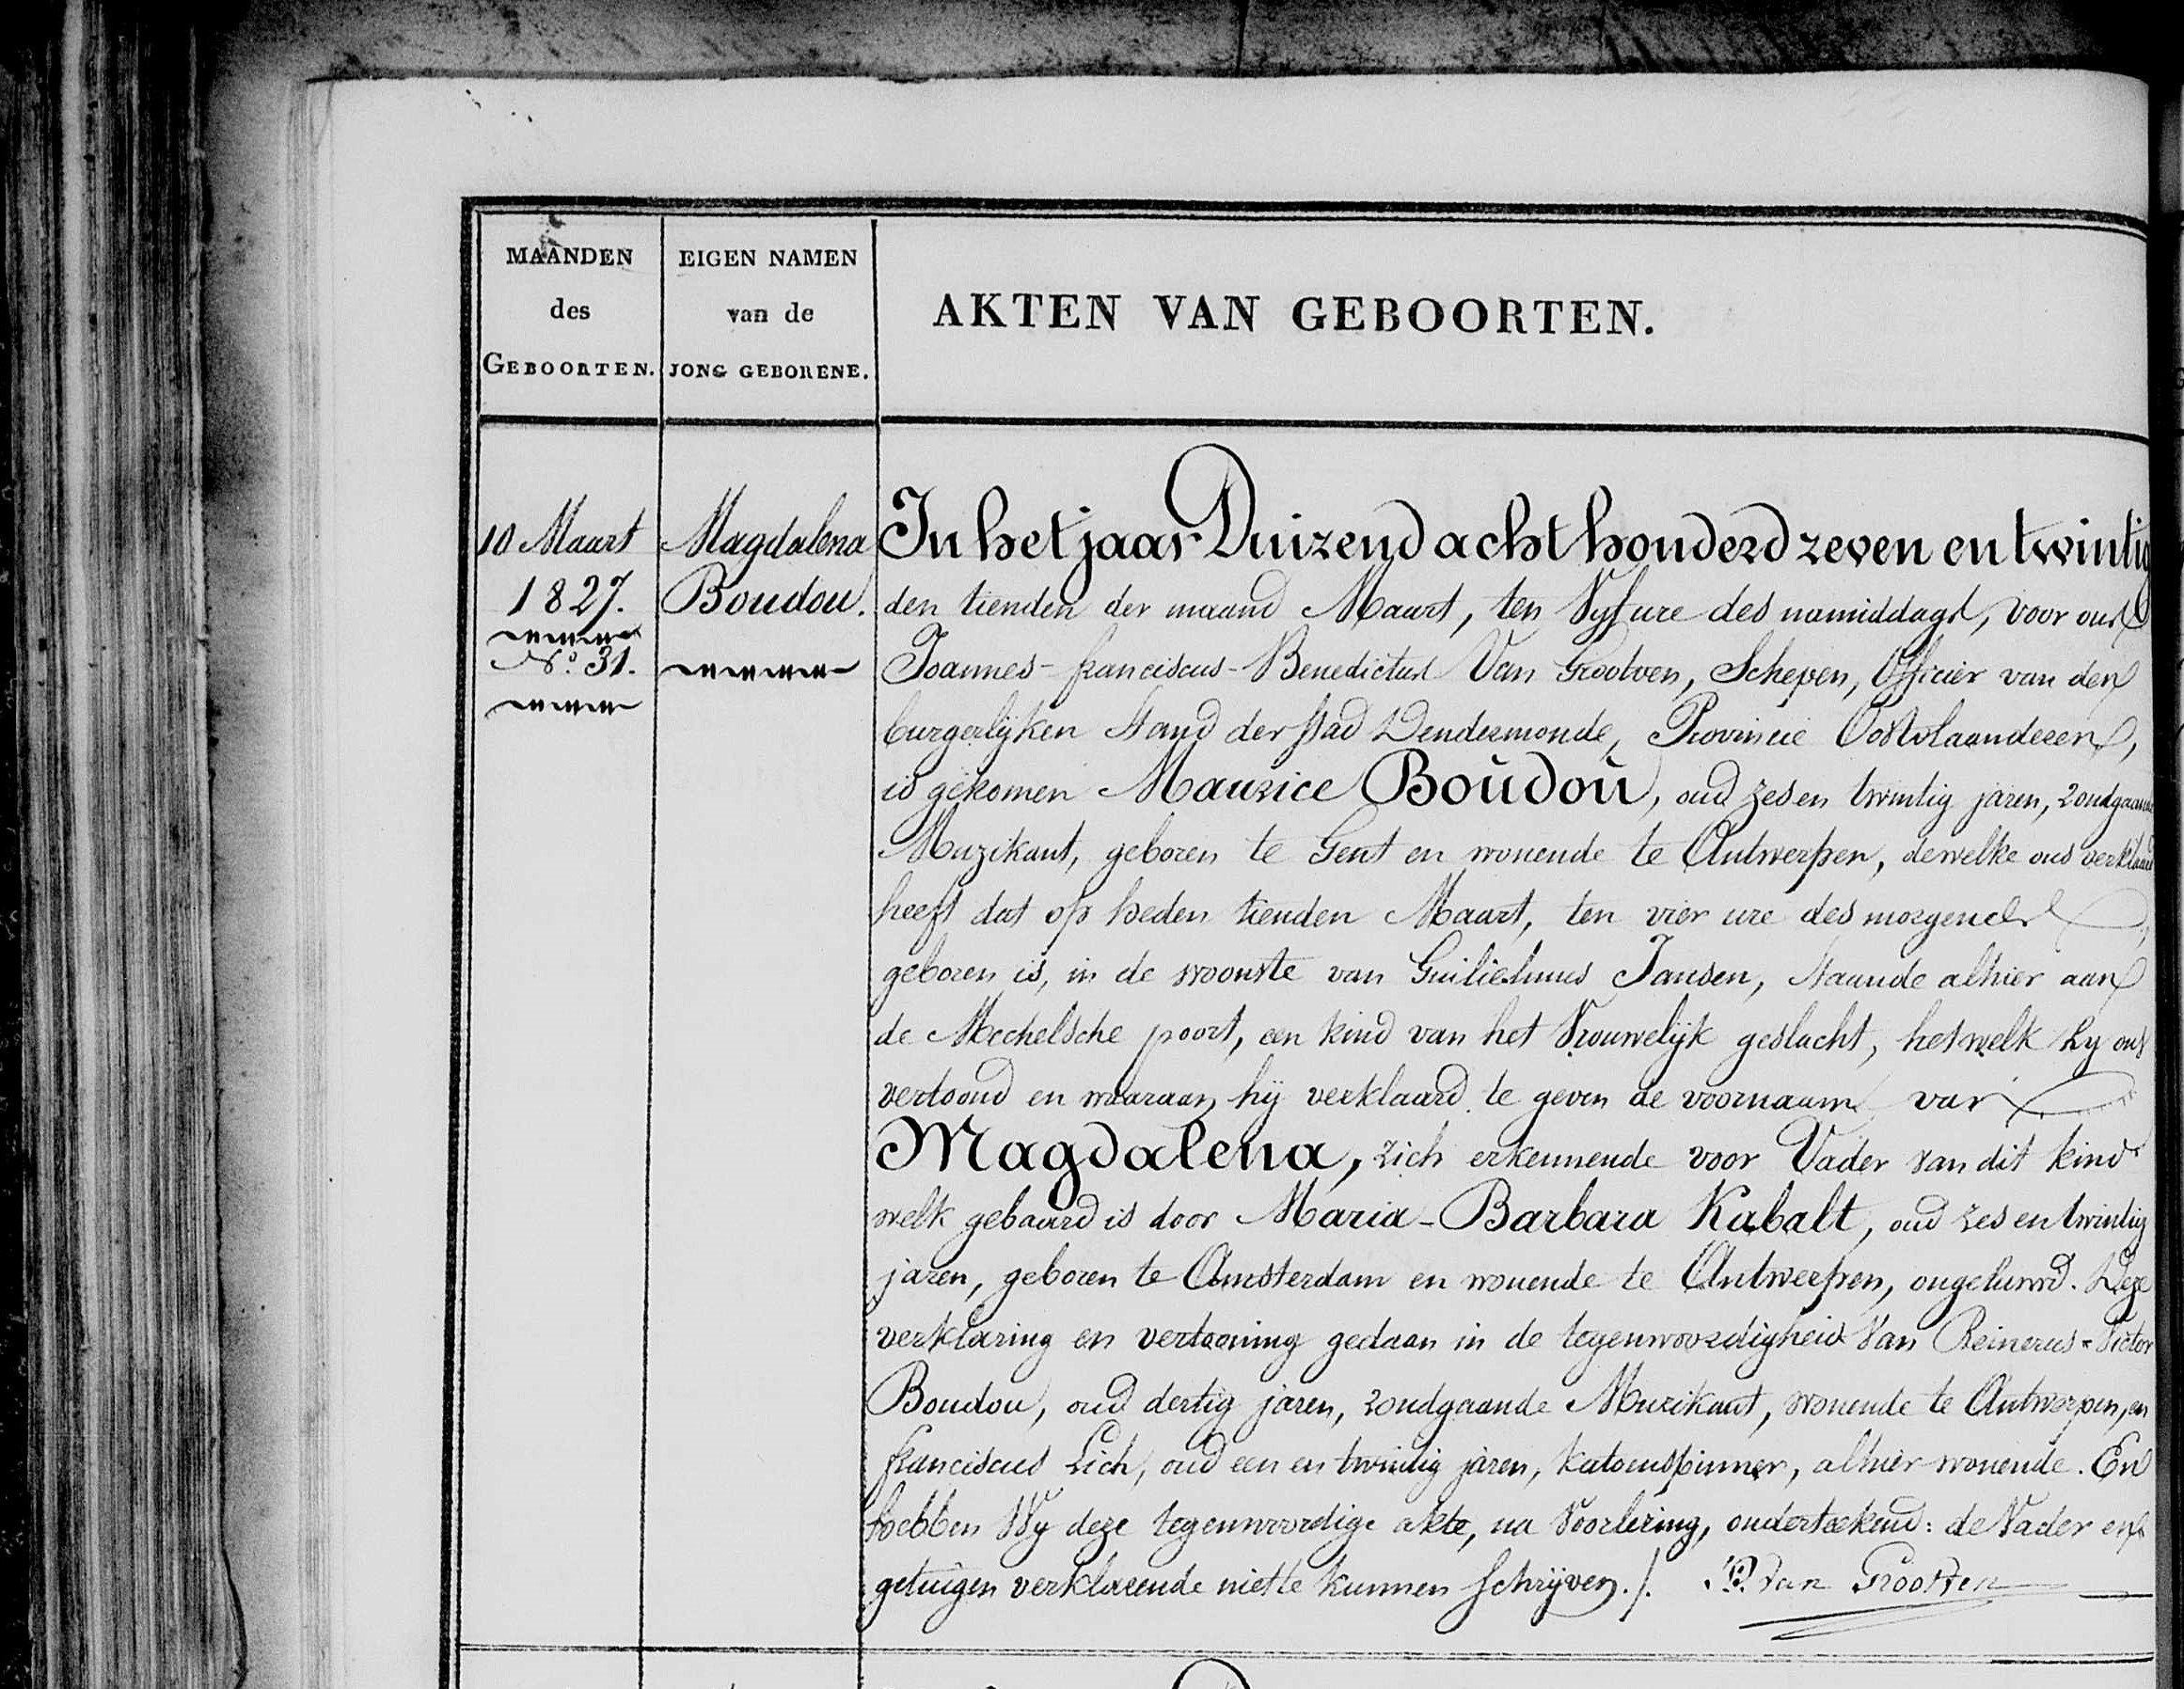 MAANDEN
des
GEBOORTEN.
EIGEN NAMEN
van de
JONG GEBORENE.
AKTEN VAN GEBOORTEN.
10 Maart
1827.
N.o 31.
Magdalena
Boudou.
In het jaar Duizend acht honderd zeven en twintig
den tienden der maand Maart, ten Vyf ure des namiddags, voor ons
Joannes-franciscus-Benedictus Van Grootven, Schepen, Officier van den
burgerlijken Stand der stad Dendermonde, Provincie Oostvlaanderen,
is gekomen Maurice Boudou, oud zes en twintig jaren, rondgaande
Muzikant, geboren te Gent en wonende te Antwerpen, dewelke ons verklaard
heeft dat op heden tienden Maart, ten vier ure des morgends,
geboren is, in de woonste van Guilielmus Jansen, staande alhier aan
de Mechelsche poort, een kind van het Vrouwelijk geslacht, het welk hy ons
vertoond en waaraan hij verklaard te geven de voornaam van
Magdalena, zich erkennende voor Vader van dit kind
welk gebaard is door Maria-Barbara Kabalt, oud zes en twintig
jaren, geboren te Amsterdam en wonende te Antwerpen, ongehuwd. Deze
verklaring en vertooning gedaan in de tegenwoordigheid Van Reinerus=Victor
Boudou, oud dertig jaren, rondgaande Muzikant, wonende te Antwerpen, en
franciscus Lich, oud een en twintig jaren, katoenspinner, alhier wonende. En
hebben Wy deze tegenwoordige akte, na Voorlezing, onderteekend: de Vader en
getuigen verklarende niet te kunnen schrijven./. Van Grootven